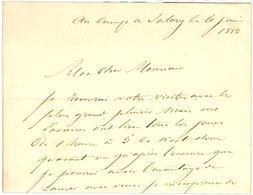 Au camp de Satory le 6 juin
1850
Mon cher Monsieur
Je recevrai votre visite avec le
plus grand plaisir mais nos
Exercices ont lieu tous les jours
De 1 heure à 5. Ce n'est donc
qu'avant ou qu'après l'exercice que
je pourrai avoir l'avantage de
causer avec vous. Je m'empresse de